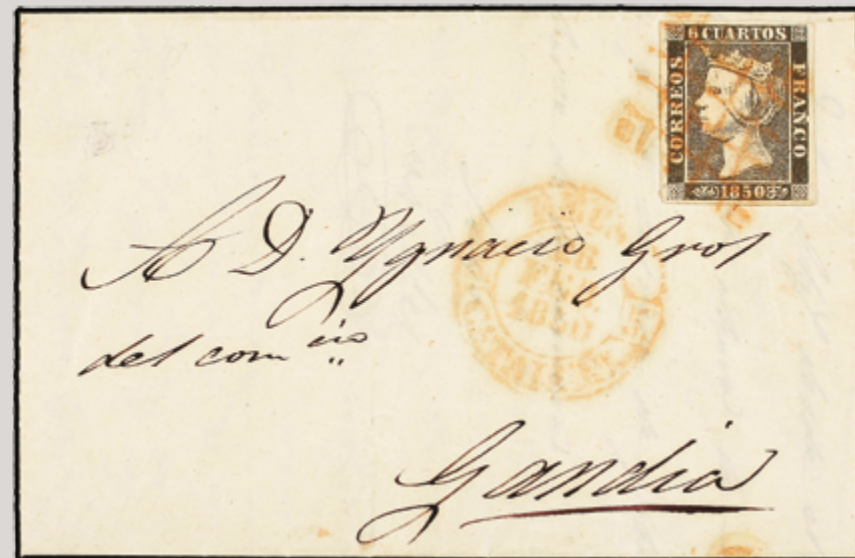 6 CUARTOS
CORREOS
FRANCO
1850
A D. Ygnacio Gros
del com.cio
Gandia
FEB.
1850